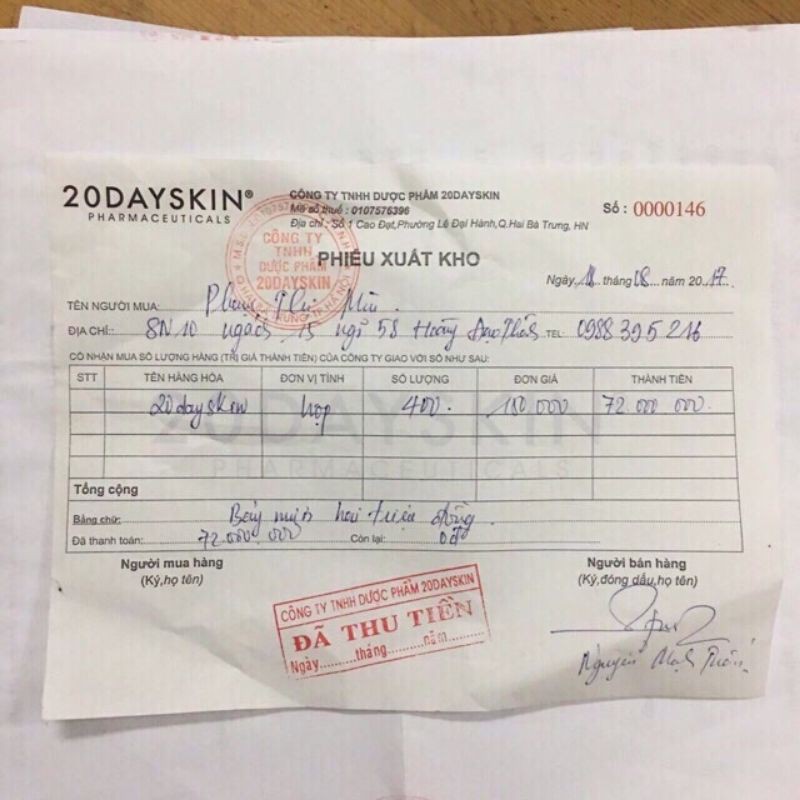 20DAYSKIN®
PHARMACEUTICALS
CÔNG TY TNHH DƯỢC PHẨM 20DAYSKIN
Mã số thuế : 0107576396
Địa chỉ : Số 1 Cao Đạt,Phường Lê Đại Hành,Q.Hai Bà Trưng, HN
Số : 0000146
CÔNG TY
TNHH
DƯỢC PHẨM
20DAYSKIN
PHIẾU XUẤT KHO
Ngày 18 tháng 08 năm 2017
TÊN NGƯỜI MUA: Phạm Thị
ĐỊA CHỈ: SN 10 ngách 15 ngõ 58 Hoàng Đạo Thành TEL: 0988 395 216
CÓ NHẬN MUA SỐ LƯỢNG HÀNG (TRỊ GIÁ THÀNH TIỀN) CỦA CÔNG TY GIAO VỚI SỐ NHƯ SAU:
STT TÊN HÀNG HÓA ĐƠN VỊ TÍNH SỐ LƯỢNG ĐƠN GIÁ THÀNH TIỀN
20dayskin hộp 400 180.000 72.000 000
Tổng cộng
Bằng chữ: Bảy mươi hai triệu đồng.
Đã thanh toán: 72.000.000 Còn lại: 0đ
Người mua hàng Người bán hàng
(Ký,họ tên) (Ký,đóng dấu,họ tên)
CÔNG TY TNHH DƯỢC PHẨM 20DAYSKIN
ĐÃ THU TIỀN
Ngày.........tháng.........năm.........
Nguyễn Mạnh